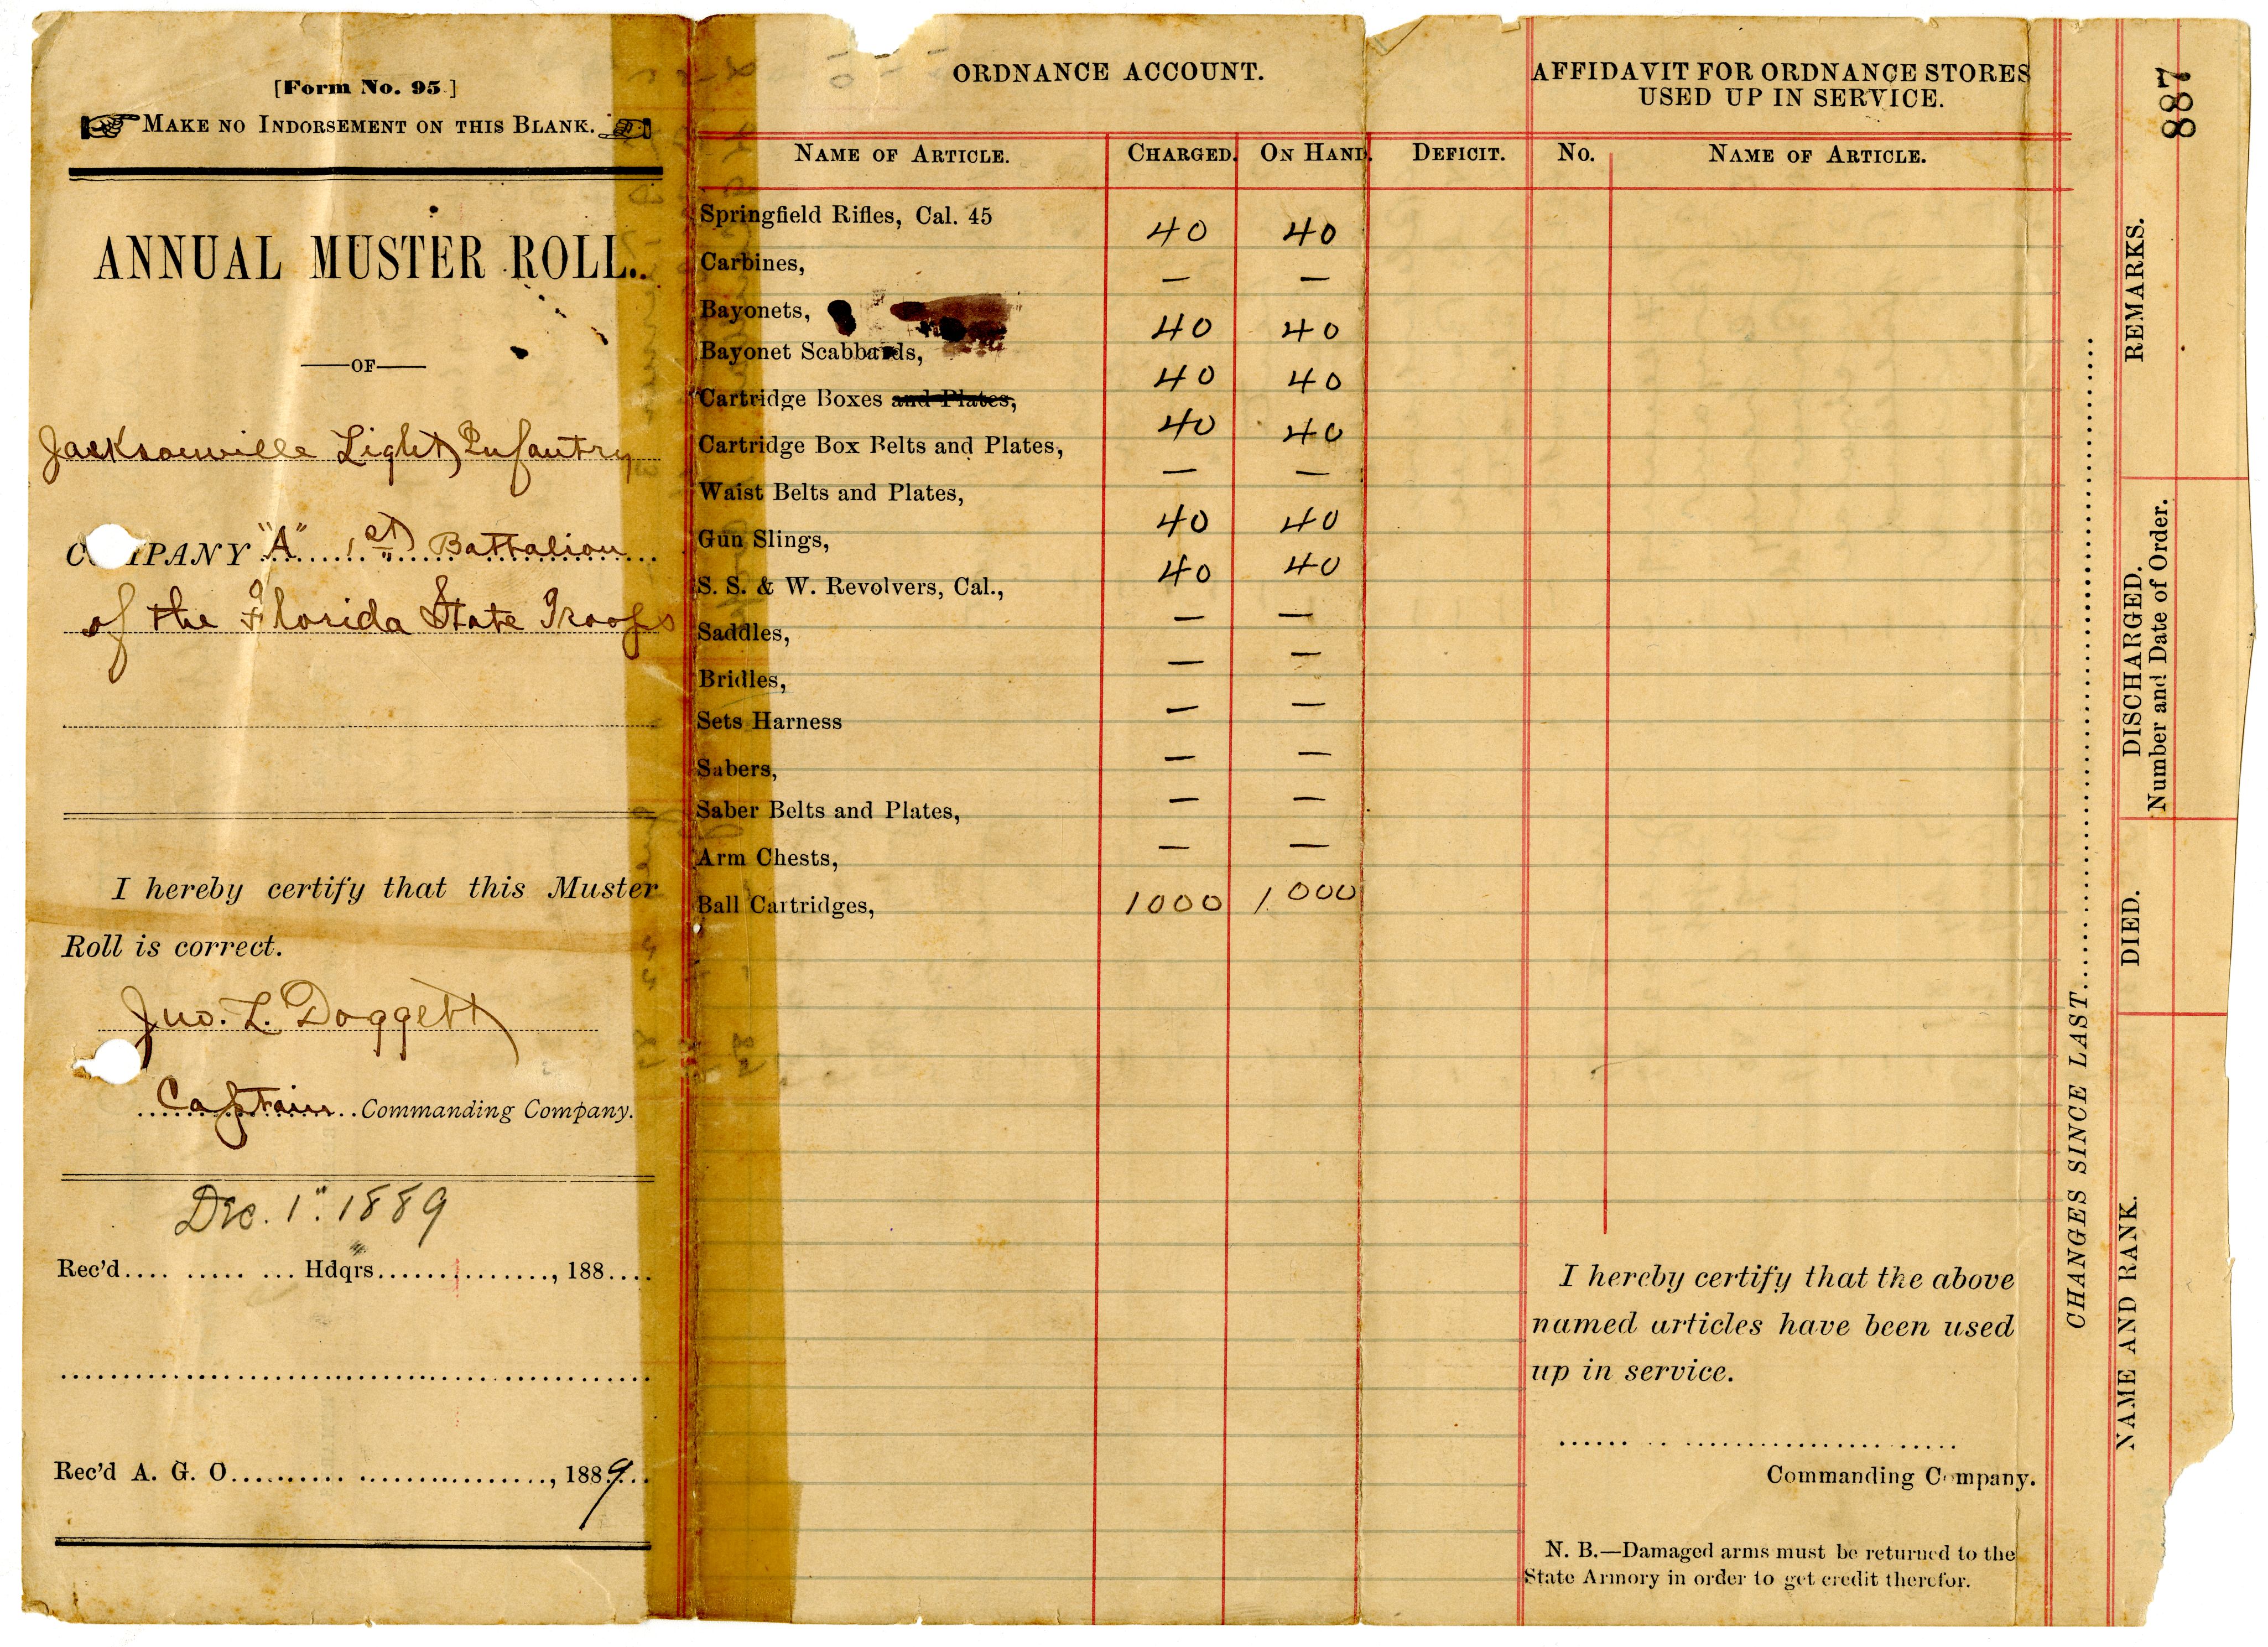 [Form No. 95.]
MAKE NO INDORSEMENT ON THIS BLANK.
ANNUAL MUSTER ROLL.
—OF—
Jacksonville Light Infantry
COMPANY "A" 1st Battalion
of the Florida State Troops
I hereby certify that this Muster
Roll is correct.
Jno. L. Doggett
Captain Commanding Company.
Dec. 1". 1889
Rec'd.... ..... ... Hdqrs..............., 188....
Rec'd A. G. O..........................., 1889
ORDNANCE ACCOUNT.
NAME OF ARTICLE. CHARGED. ON HAND. DEFICIT.
Springfield Rifles, Cal. 45 40 40
Carbines, — —
Bayonets, 40 40
Bayonet Scabbards, 40 40
Cartridge Boxes and Plates, 40 40
Cartridge Box Belts and Plates, — —
Waist Belts and Plates, 40 40
Gun Slings, 40 40
S. S. & W. Revolvers, Cal., — —
Saddles, — —
Bridles, — —
Sets Harness — —
Sabers, — —
Saber Belts and Plates, — —
Arm Chests,
Ball Cartridges, 1000 1000
AFFIDAVIT FOR ORDNANCE STORES
USED UP IN SERVICE.
No. NAME OF ARTICLE.
I hereby certify that the above
named articles have been used
up in service.
Commanding Company.
N. B.—Damaged arms must be returned to the
State Armory in order to get credit therefor.
CHANGES SINCE LAST
NAME AND RANK.
DIED.
DISCHARGED.
Number and Date of Order.
REMARKS.
887